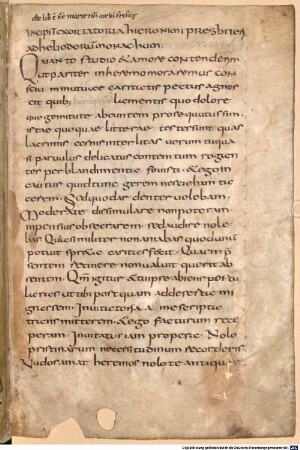 INCIPIT EXORTATORIA HIERONIMI PRESBITERI
AD HELIODORUM MONACHUM.
Quanto studio & amore contenderim
ut pariter in heremo moraremur con
scium mutuae caritatis pectus agnos
cit quib; lamentis quo dolore
quo gemitu te abeuntem prosecutus sim
istae quoque litterae testes sunt quas
lacrimis cernis interlitas verum tu qua
si parvulus delicatus contemptum rogan
tis per blandimenta fovisti & ego in
cautus quid tunc agerem nesciebam ta
cerem Sed quod ardenter volebam
Moderate dissimulare non poteram
Impensius obsecrarem sed audire nole
bas Quia similiter non amabas quod unum
potuit spreta caritas fecit Quem p
sentem retinere non valuit querit ab
sentem Qm igitur & tu ipse abiens postu
laueras ut tibi postquam ad deserta mi
grassem Invitatoria a me scriptae
transmitterem & ego facturum rece
peram Invitatur iam propera Nolo
pristinarum necessitudinum recorderis
Nudos amat heremus nolo te antiquae